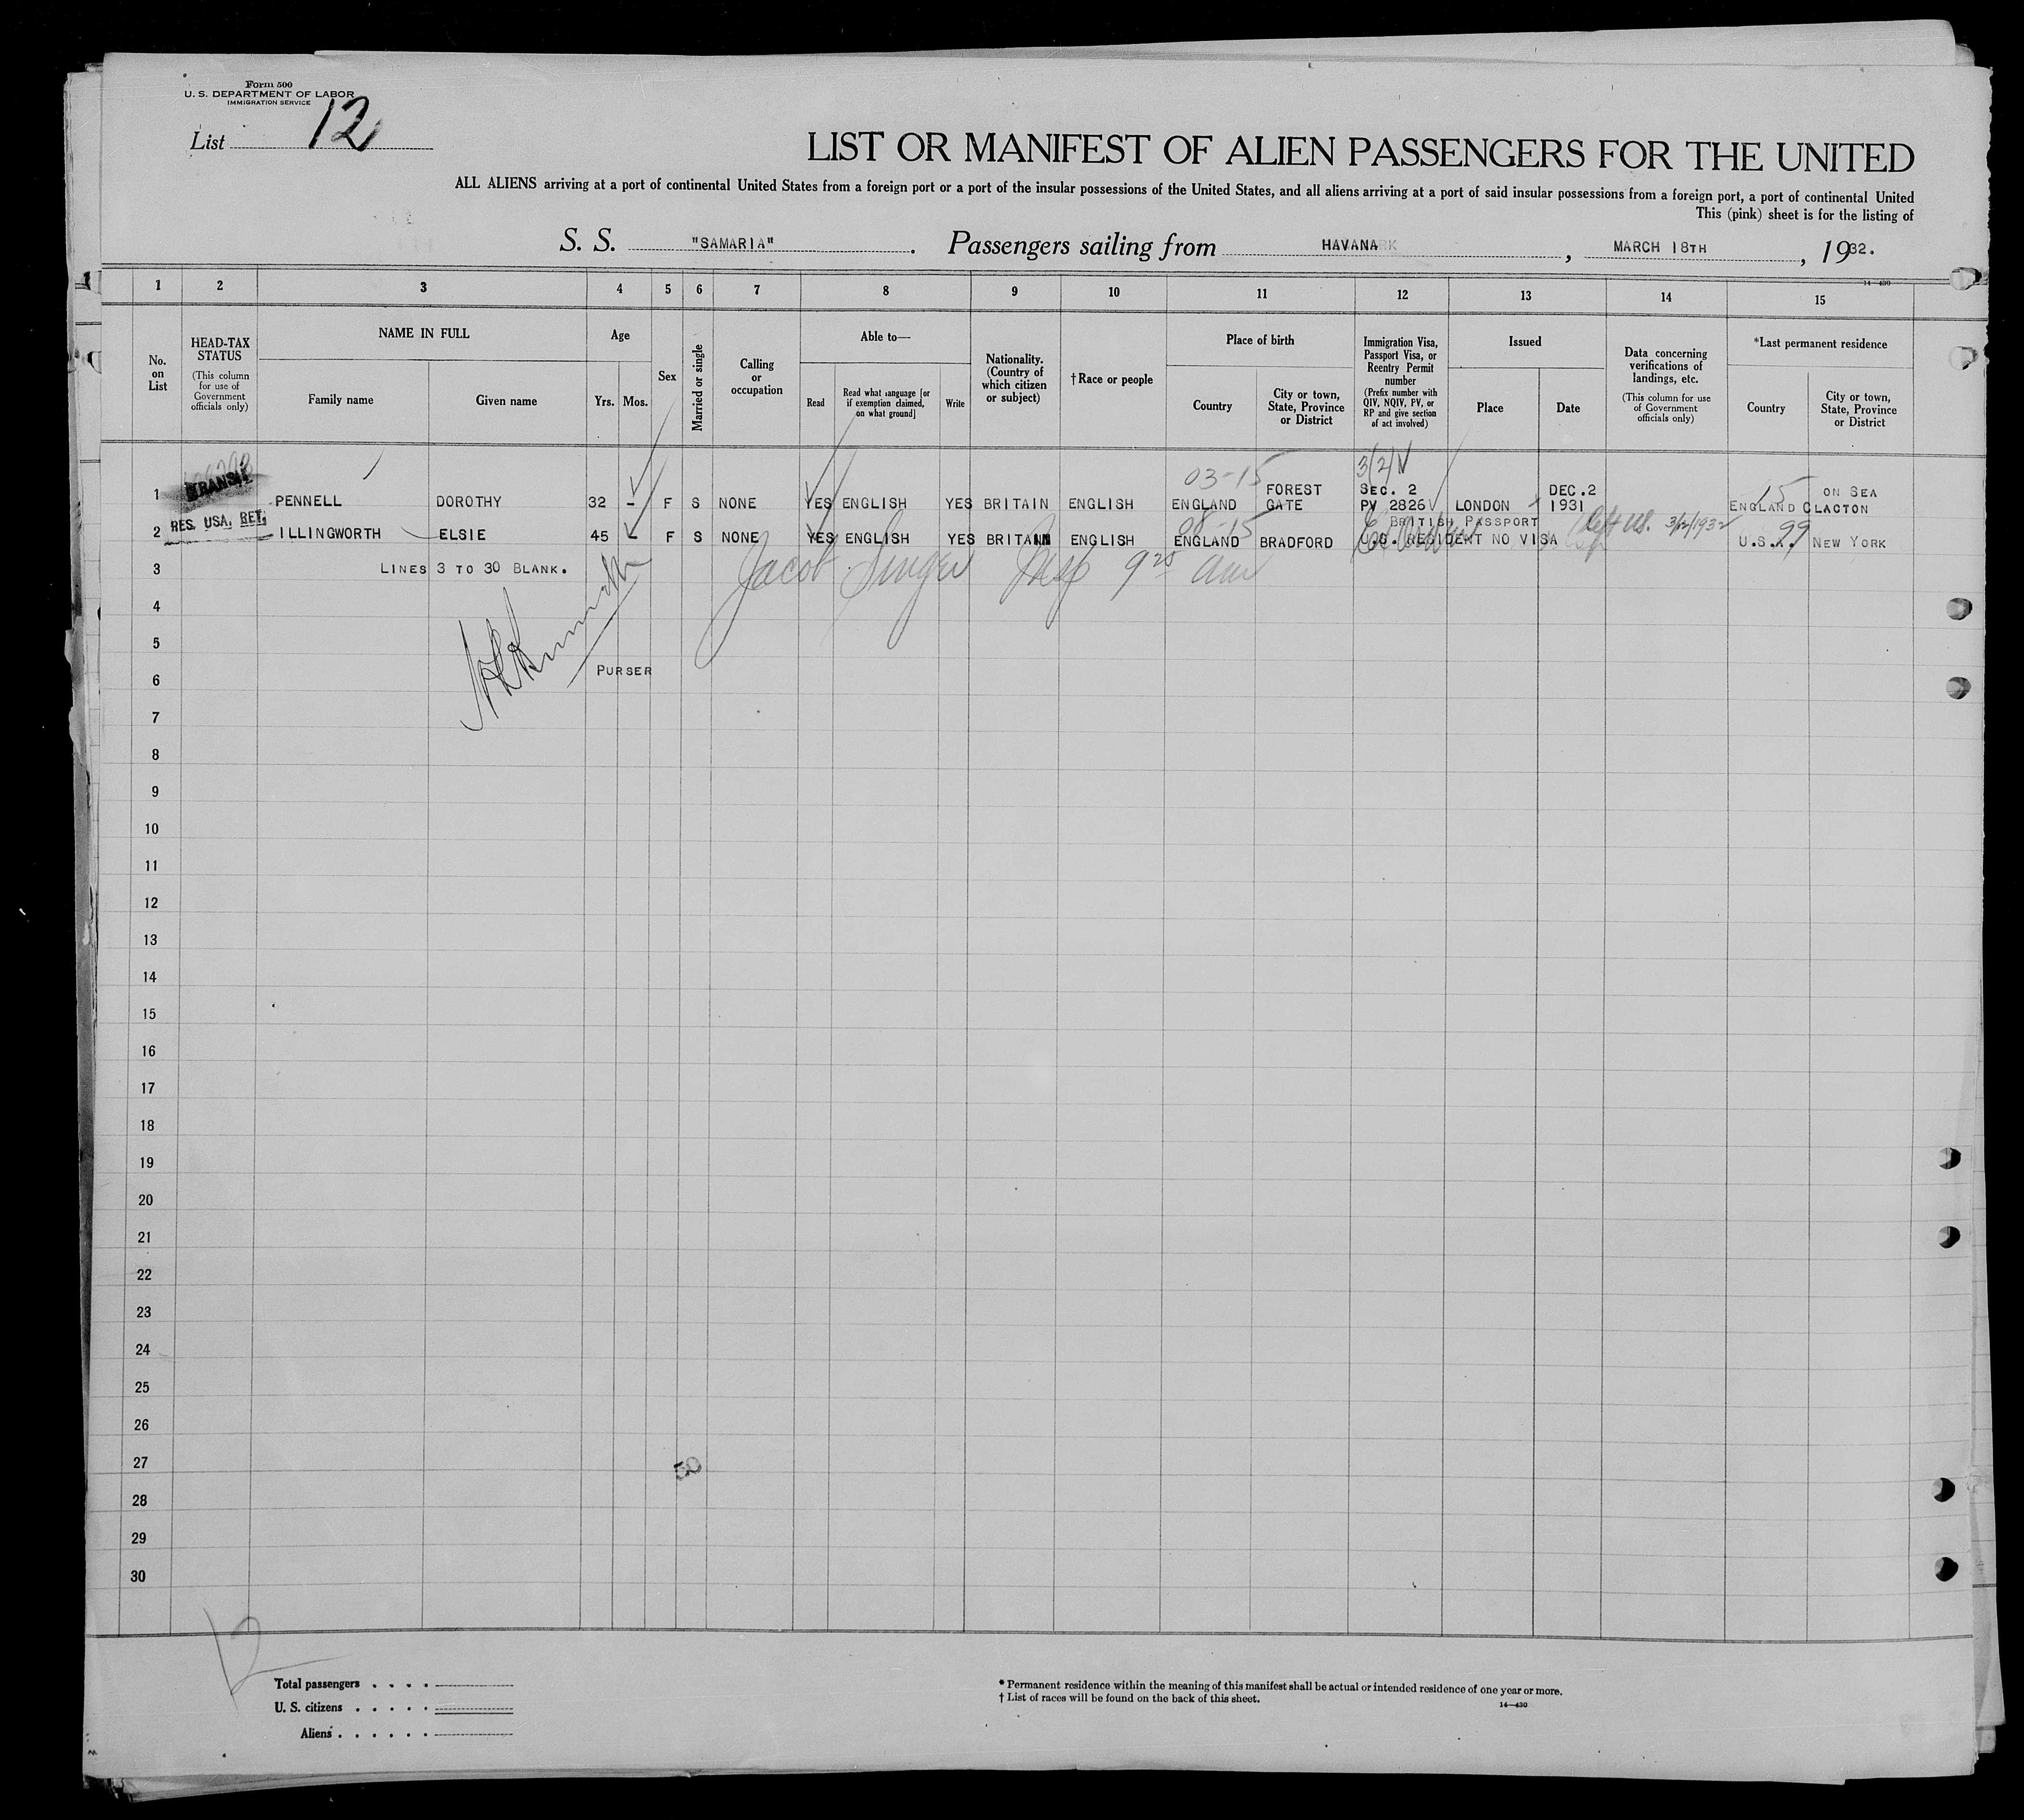 Form 500
U. S. DEPARTMENT OF LABOR
IMMIGRATION SERVICE
List 12
LIST OR MANIFEST OF ALIEN PASSENGERS FOR THE UNITED
ALL ALIENS arriving at a port of continental United States from a foreign port or a port of the insular possessions of the United States, and all aliens arriving at a port of said insular possessions from a foreign port, a port of continental United
This (pink) sheet is for the listing of
S. S. "SAMARIA". Passengers sailing from HAVANA, MARCH 18TH, 1932.
14—430
1 2 3 4 5 6 7 8 9 10 11 12 13 14 15
No. on List
HEAD-TAX STATUS (This column for use of Government officials only)
NAME IN FULL
Family name
Given name
Age
Yrs. Mos.
Sex
Married or single
Calling or occupation
Able to—
Read
Read what language [or if exemption claimed, on what ground]
Write
Nationality. (Country of which citizen or subject)
†Race or people
Place of birth
Country
City or town, State, Province or District
Immigration Visa, Passport Visa, or Reentry Permit number (Prefix number with QIV, NQIV, PV, or RP and give section of act involved)
Issued
Place
Date
Data concerning verifications of landings, etc. (This column for use of Government officials only)
*Last permanent residence
Country
City or town, State, Province or District
03-15 3/2/V
1 TRANSIT PENNELL DOROTHY 32 - F S NONE YES ENGLISH YES BRITAIN ENGLISH ENGLAND FOREST GATE SEC. 2 PV 2826 LONDON DEC.2 1931 15 ENGLAND CLACTON ON SEA
08-15
2 RES. USA. RET. ILLINGWORTH ELSIE 45 - F S NONE YES ENGLISH YES BRITAIN ENGLISH ENGLAND BRADFORD BRITISH PASSPORT U.S. RESIDENT NO VISA left US. 3/12/1932 99 U.S.A. NEW YORK
3 LINES 3 TO 30 BLANK. Jacob Singer Insp 9 25 am
4
5
6 PURSER
7
8
9
10
11
12
13
14
15
16
17
18
19
20
21
22
23
24
25
26
27
28
29
30
12
Total passengers
U. S. citizens
Aliens
* Permanent residence within the meaning of this manifest shall be actual or intended residence of one year or more.
† List of races will be found on the back of this sheet.
14—430